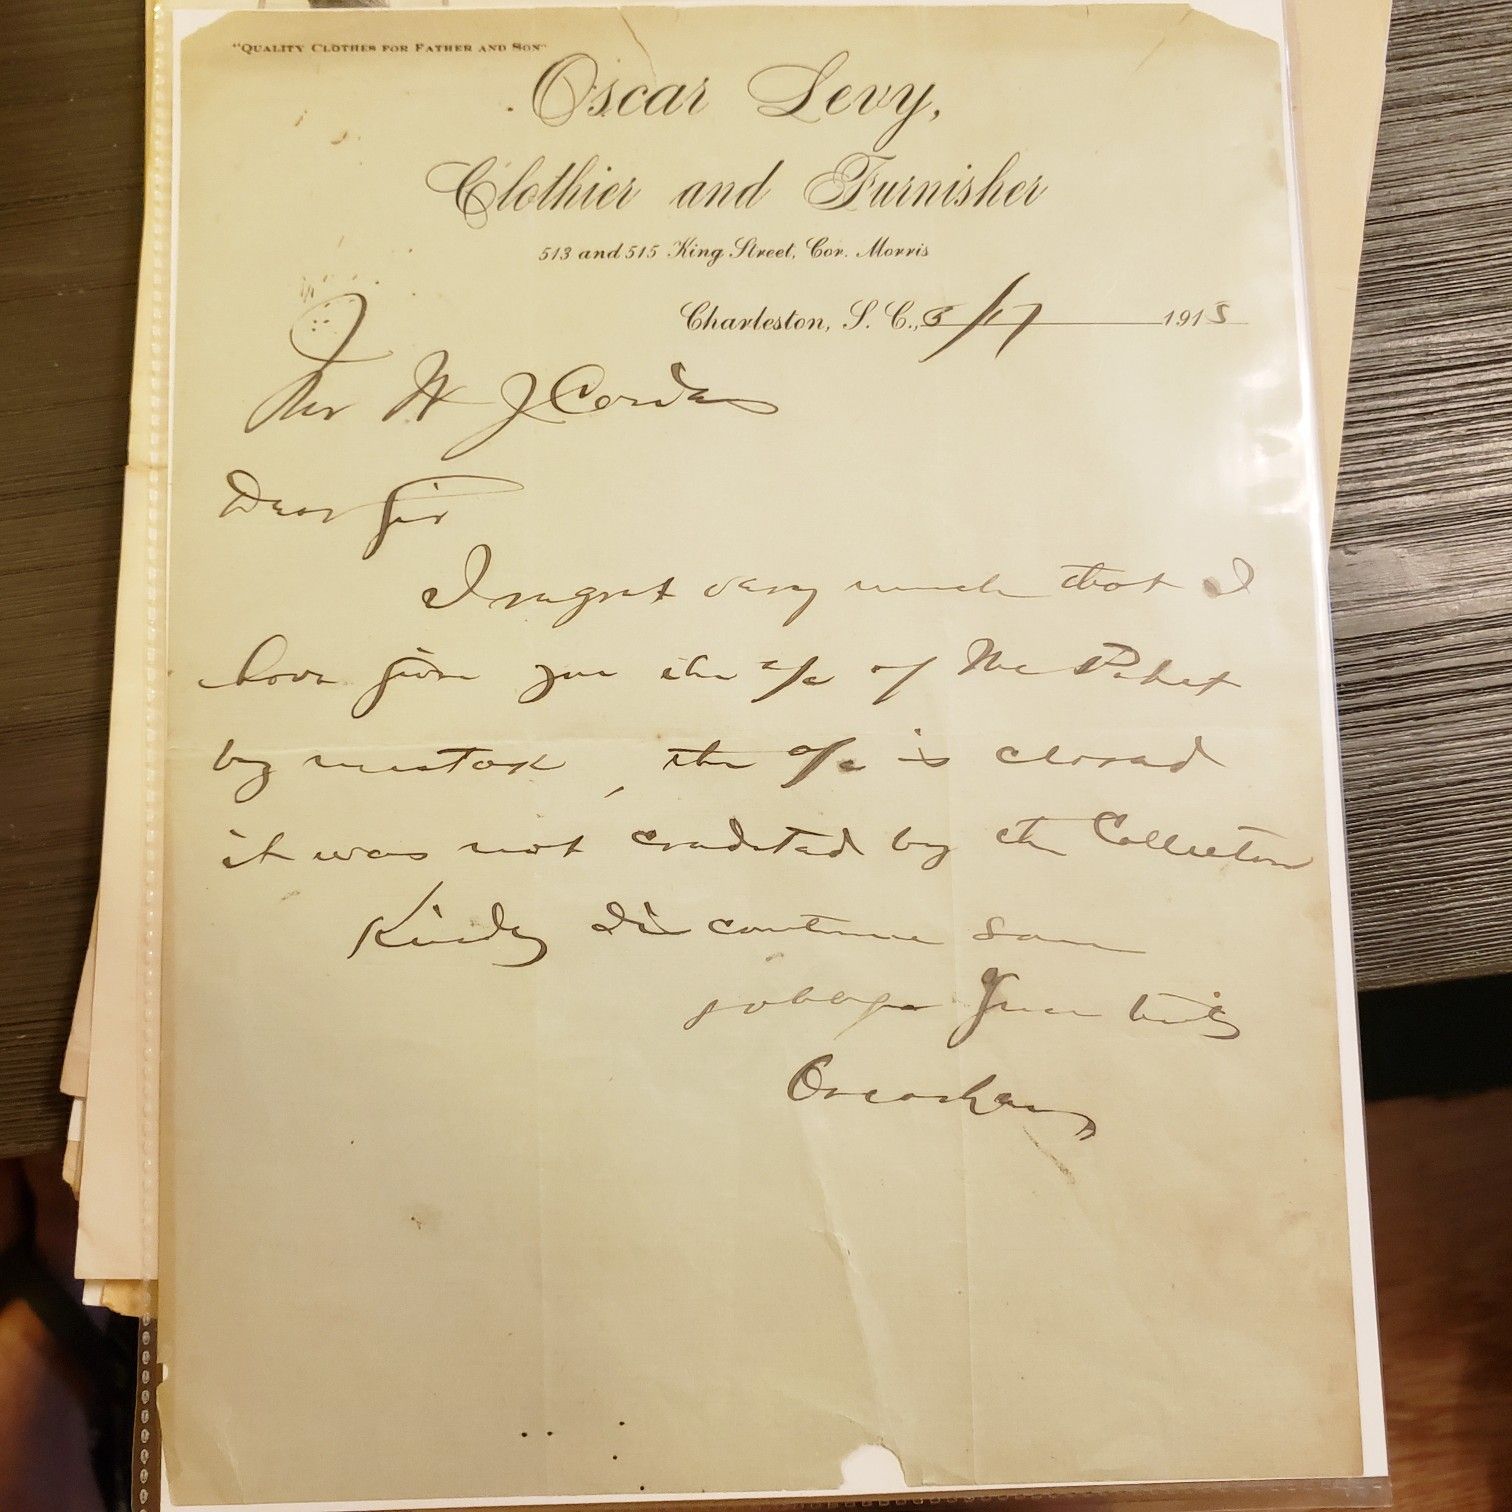 "QUALITY CLOTHES FOR FATHER AND SON"
Oscar Levy,
Clothier and Furnisher
513 and 515 King Street, Cor. Morris
Charleston, S. C., /17 191
W J Cordes
Dear Sir
I regret very much that I
have given you the a/c of
by mistake, the a/c is closed
it was not credited by the Collector
Kindly discontinue same
Yours truly
Oscar Levy